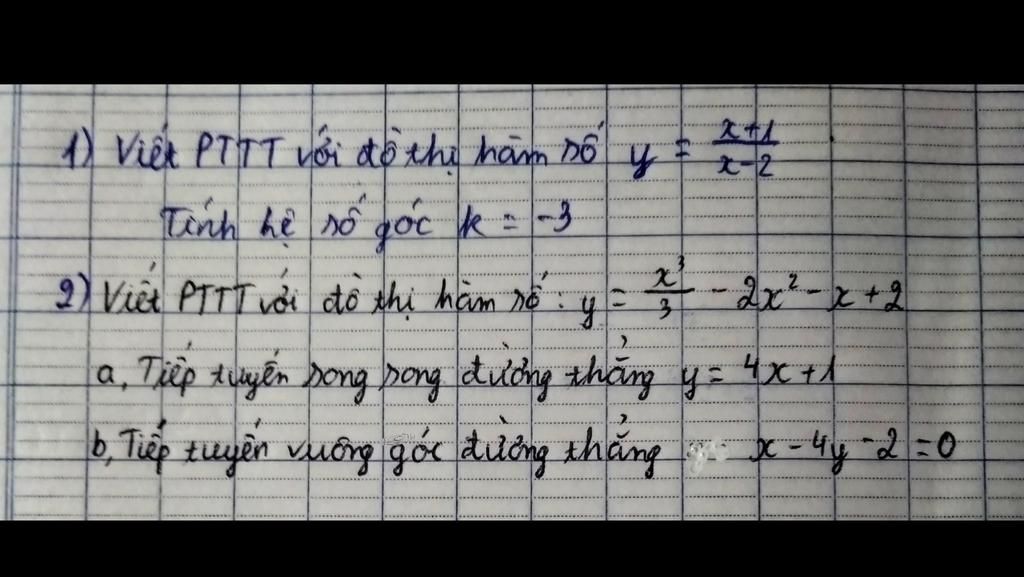 1) Viết PTTT với đồ thị hàm số y = \frac{x+1}{x-2}
Tính hệ số góc k = -3
2) Viết PTTT với đồ thị hàm số: y = \frac{x^3}{3} - 2x^2 - x + 2
a, Tiếp tuyến song song đường thẳng y = 4x + 1
b, Tiếp tuyến vuông góc đường thẳng x - 4y - 2 = 0